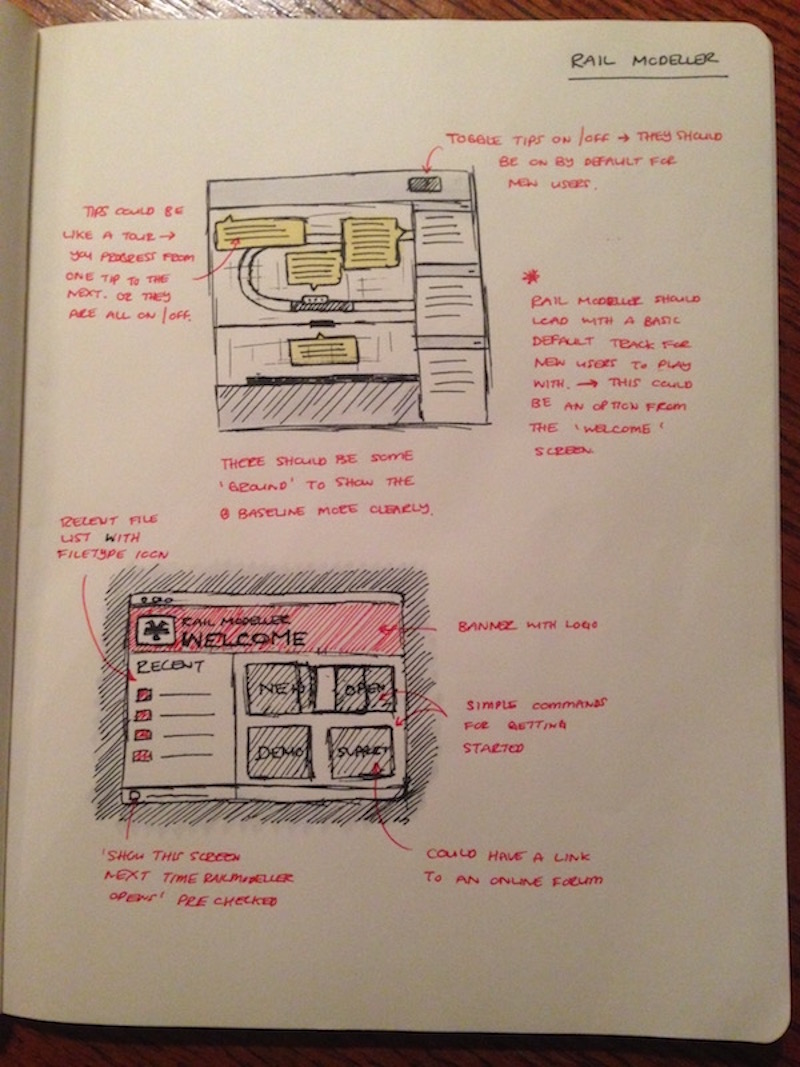 RAIL MODELLER
TOGGLE TIPS ON/OFF → THEY SHOULD
BE ON BY DEFAULT FOR
NEW USERS.
TIPS COULD BE
LIKE A TOUR →
YOU PROGRESS FROM
ONE TIP TO THE
NEXT. OR THEY
ARE ALL ON/OFF.
*
RAIL MODELLER SHOULD
LOAD WITH A BASIC
DEFAULT TRACK FOR
NEW USERS TO PLAY
WITH. → THIS COULD
BE AN OPTION FROM
THE 'WELCOME'
SCREEN.
THERE SHOULD BE SOME
'GROUND' TO SHOW THE
BASELINE MORE CLEARLY.
RECENT FILE
LIST WITH
FILETYPE ICON
RAIL MODELLER
WELCOME
BANNER WITH LOGO
RECENT
NEW
OPEN
DEMO
SUPPORT
SIMPLE COMMANDS
FOR GETTING
STARTED
'SHOW THIS SCREEN
NEXT TIME RAILMODELLER
OPENS' PRE CHECKED
COULD HAVE A LINK
TO AN ONLINE FORUM